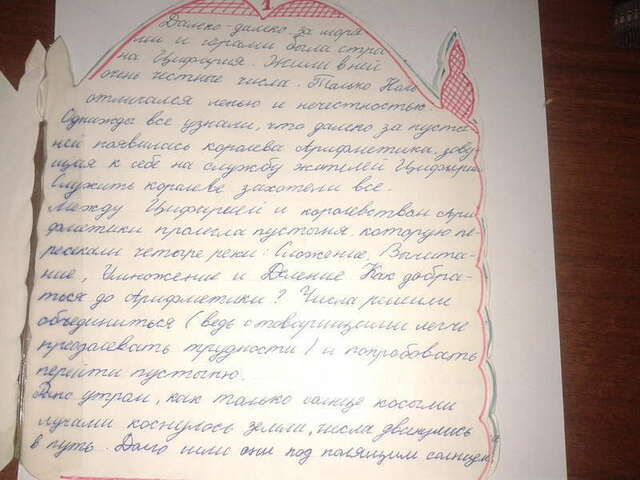 1
Далеко-далеко за моря
ми и горами была стра
на Цифирия. Жили в ней
очень честные числа. Только Ноль
отличался ленью и нечестностью.
Однажды все узнали, что далеко за пусты
ней появилась королева Арифметика, зову
щая к себе на службу жителей Цифирии
Служить королеве захотели все.
Между Цифирией и королевством Ари
фметики пролегла пустыня, которую пе-
ресекали четыре реки: Сложение, Вычита-
ние, Умножение и Деление. Как добра-
ться до Арифметики? Числа решили
объединиться (ведь с товарищами легче
преодолевать трудности) и попробовать
перейти пустыню.
Рано утром, как только солнце косыми
лучами коснулось земли, числа двинулись
в путь. Долго шли они под палящим солнцем